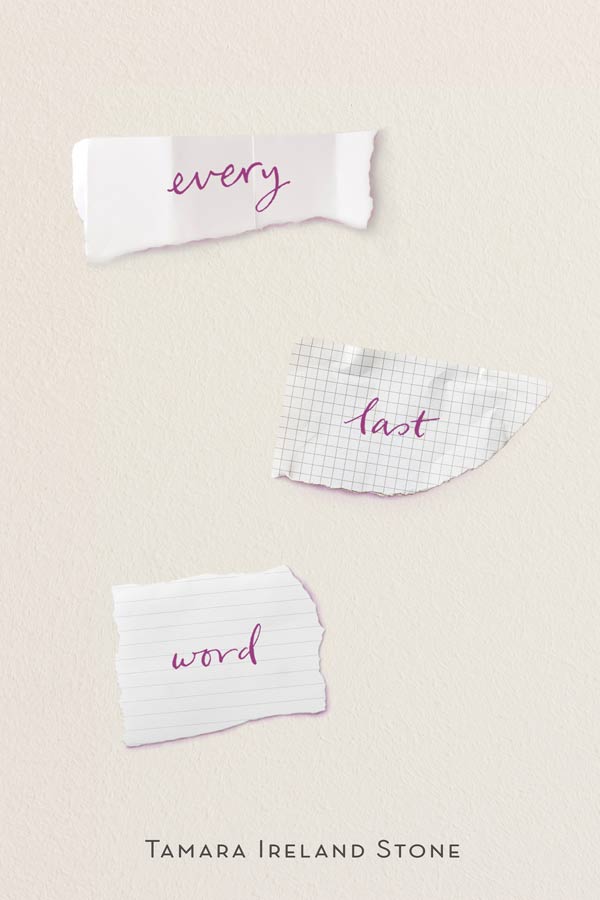 every
last
word
TAMARA IRELAND STONE